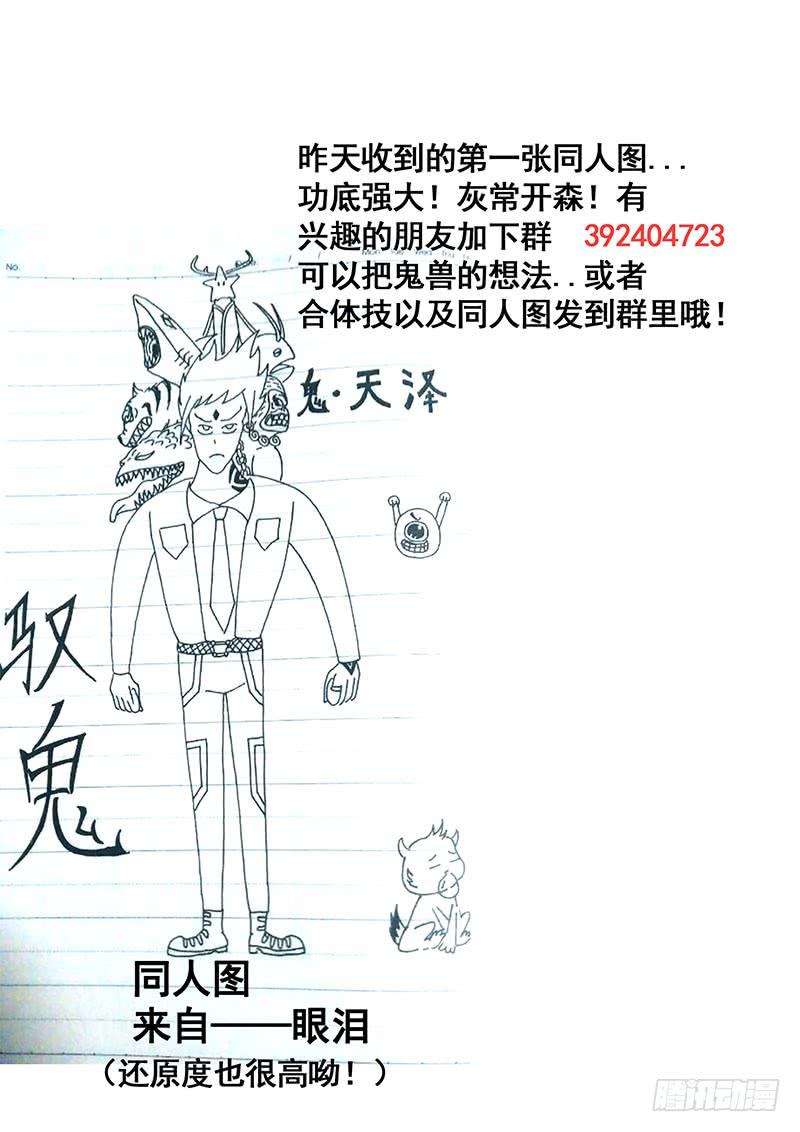 昨天收到的第一张同人图...
功底强大！灰常开森！有
兴趣的朋友加下群 392404723
可以把鬼兽的想法..或者
合体技以及同人图发到群里哦！
No.
鬼·天泽
驭鬼
同人图
来自——眼泪
（还原度也很高呦！）
腾讯动漫